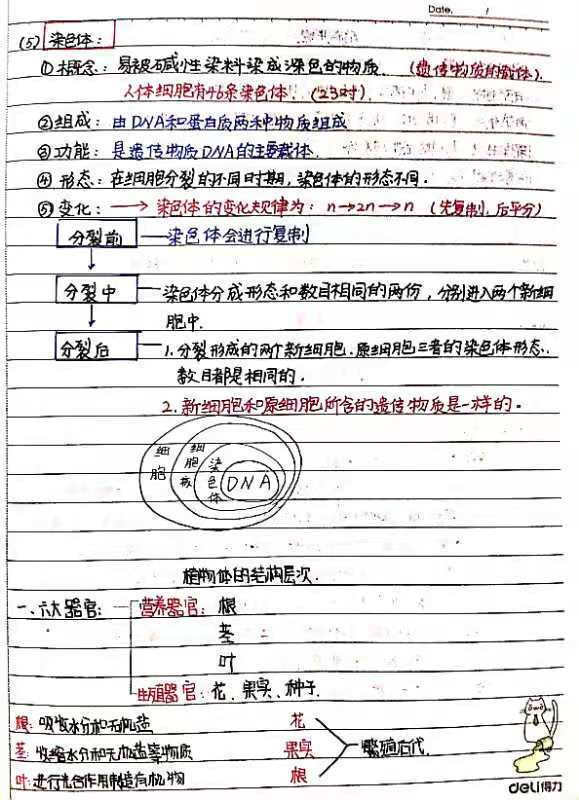 Date. /
(5) 染色体:
①概念: 易被碱性染料染成深色的物质. (遗传物质的载体).
人体细胞有46条染色体. (23对)
②组成: 由DNA和蛋白质两种物质组成
③功能: 是遗传物质DNA的主要载体.
④形态: 在细胞分裂的不同时期, 染色体的形态不同.
⑤变化: → 染色体的变化规律为: n→2n→n (先复制, 后平分)
分裂前 — 染色体会进行复制
分裂中 — 染色体分成形态和数目相同的两份, 分别进入两个新细
胞中.
分裂后 — 1. 分裂形成的两个新细胞、原细胞三者的染色体形态、
数目都是相同的.
2. 新细胞和原细胞所含的遗传物质是一样的.
细胞 细胞核 染色体 DNA
植物体的结构层次.
一、六大器官: 营养器官: 根
茎
叶
生殖器官: 花、果实、种子.
根: 吸收水分和无机盐 花
茎: 水分和无机盐等物质 果实 繁殖后代.
叶: 进行光合作用制造有机物 根
deli得力